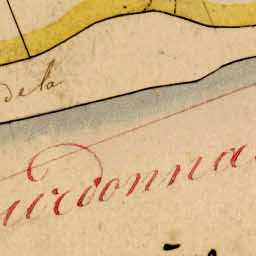 de la
urdonna